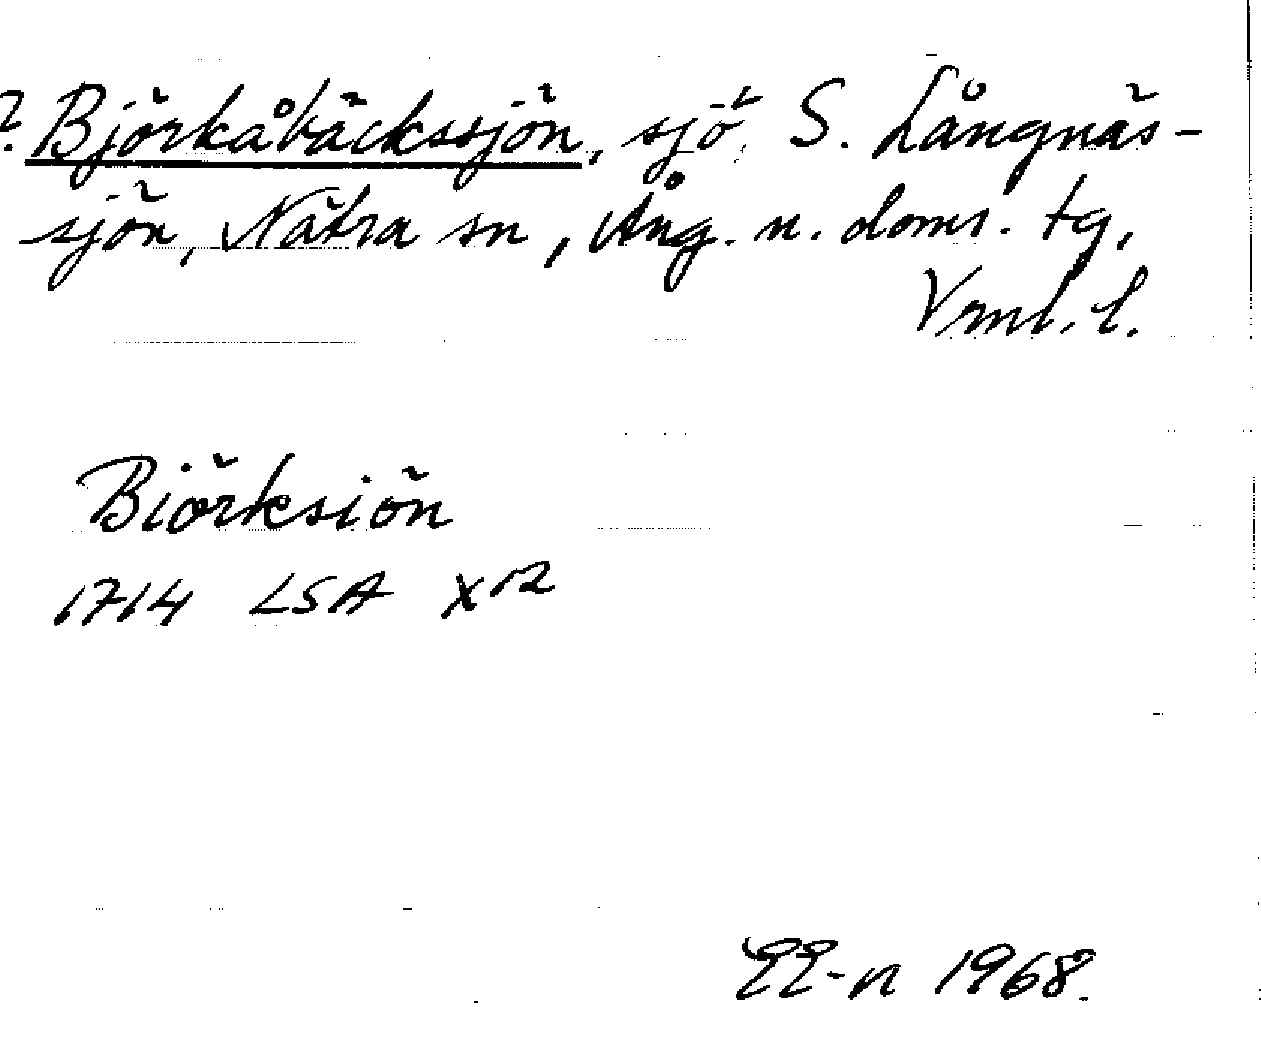 ?. Björkåbäckssjön, sjö, S. Långnäs-
sjön, Nätra sn, Ång. n. doms. tg,
Vrml. l.
Biörksiön
1714 LSA X 12
EE-n 1968.